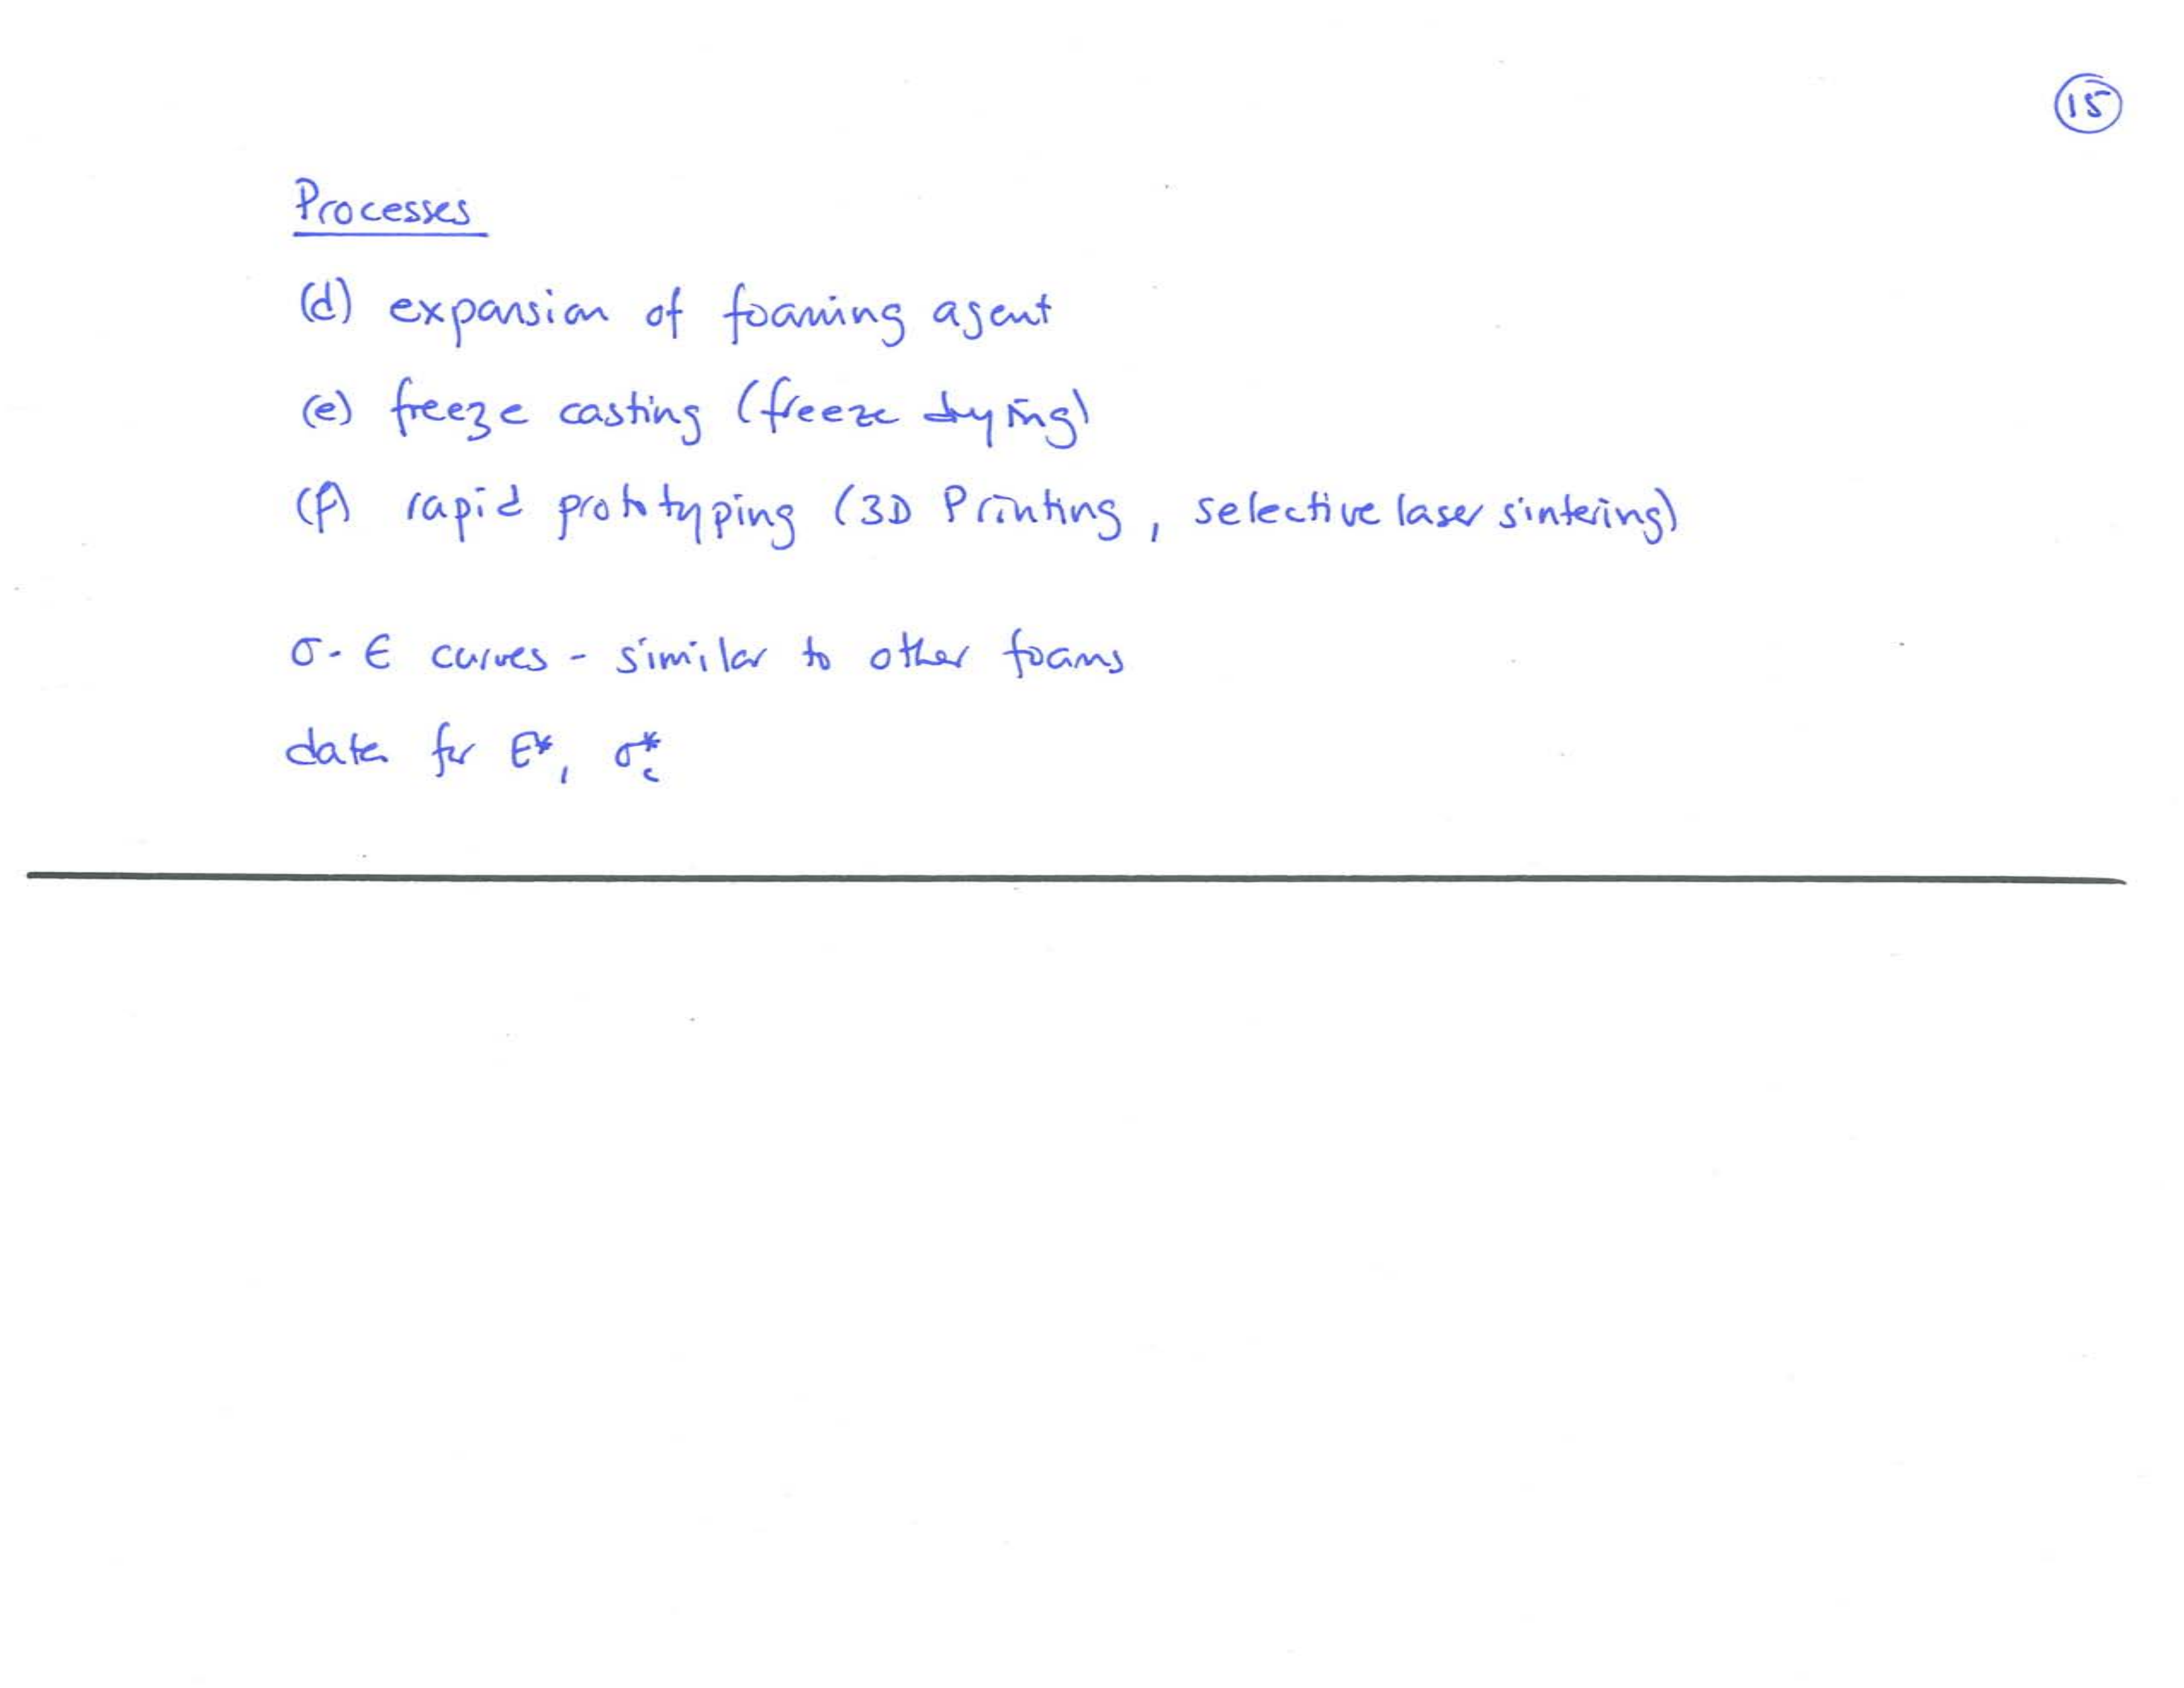 15
Processes
(d) expansion of foaming agent
(e) freeze casting (freeze drying)
(f) rapid prototyping (3D Printing, selective laser sintering)
σ-ε curves - similar to other foams
data for E*, σc*